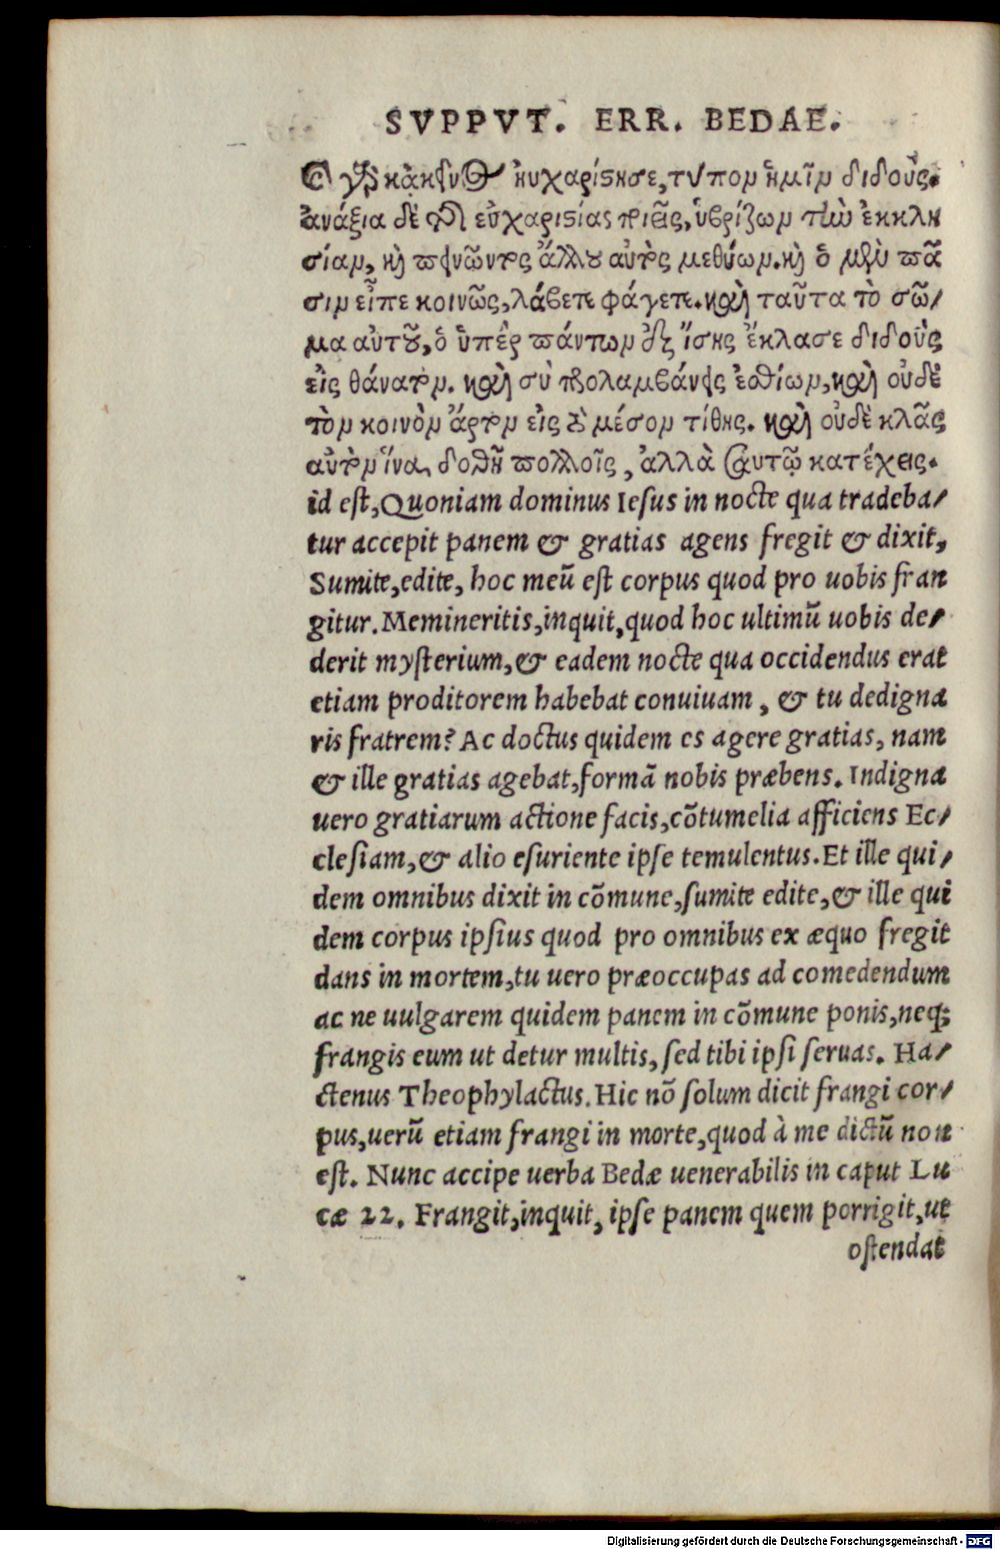 SVPPVT. ERR. BEDAE.
γὰρ κἀκεῖνος ηὐχαρίστησε, τύπον ἡμῖν διδούς.
ἀνάξια δὲ τῆς εὐχαριστίας ποιεῖς, ὑβρίζων τὴν ἐκκλη
σίαν, καὶ πεινῶντος ἄλλου αὐτὸς μεθύων. καὶ ὁ μὲν πᾶ
σιν εἶπε κοινῶς, λάβετε φάγετε. καὶ ταῦτα τὸ σῶ/
μα αὐτοῦ, ὃ ὑπὲρ πάντων ἐξ ἴσης ἔκλασε διδοὺς
εἰς θάνατον. καὶ σὺ προλαμβάνεις ἐσθίων, καὶ οὐδὲ
τὸν κοινὸν ἄρτον εἰς τὸ μέσον τίθης. καὶ οὐδὲ κλᾷς
αὐτὸν ἵνα δοθῇ πολλοῖς, ἀλλὰ σαυτῷ κατέχεις.
id est, Quoniam dominus Iesus in nocte qua tradeba/
tur accepit panem & gratias agens fregit & dixit,
Sumite, edite, hoc meũ est corpus quod pro uobis fran
gitur. Memineritis, inquit, quod hoc ultimũ uobis de/
derit mysterium, & eadem nocte qua occidendus erat
etiam proditorem habebat conuiuam, & tu dedigna
ris fratrem? Ac doctus quidem es agere gratias, nam
& ille gratias agebat, formã nobis præbens. Indigna
uero gratiarum actione facis, cõtumelia afficiens Ec/
clesiam, & alio esuriente ipse temulentus. Et ille qui/
dem omnibus dixit in cõmune, sumite edite, & ille qui
dem corpus ipsius quod pro omnibus ex æquo fregit
dans in mortem, tu uero præoccupas ad comedendum
ac ne uulgarem quidem panem in cõmune ponis, neq;
frangis eum ut detur multis, sed tibi ipsi seruas. Ha/
ctenus Theophylactus. Hic nõ solum dicit frangi cor/
pus, uerũ etiam frangi in morte, quod à me dictũ non
est. Nunc accipe uerba Bedæ uenerabilis in caput Lu
cæ 22. Frangit, inquit, ipse panem quem porrigit, ut
ostendat
Digitalisierung gefördert durch die Deutsche Forschungsgemeinschaft - DFG